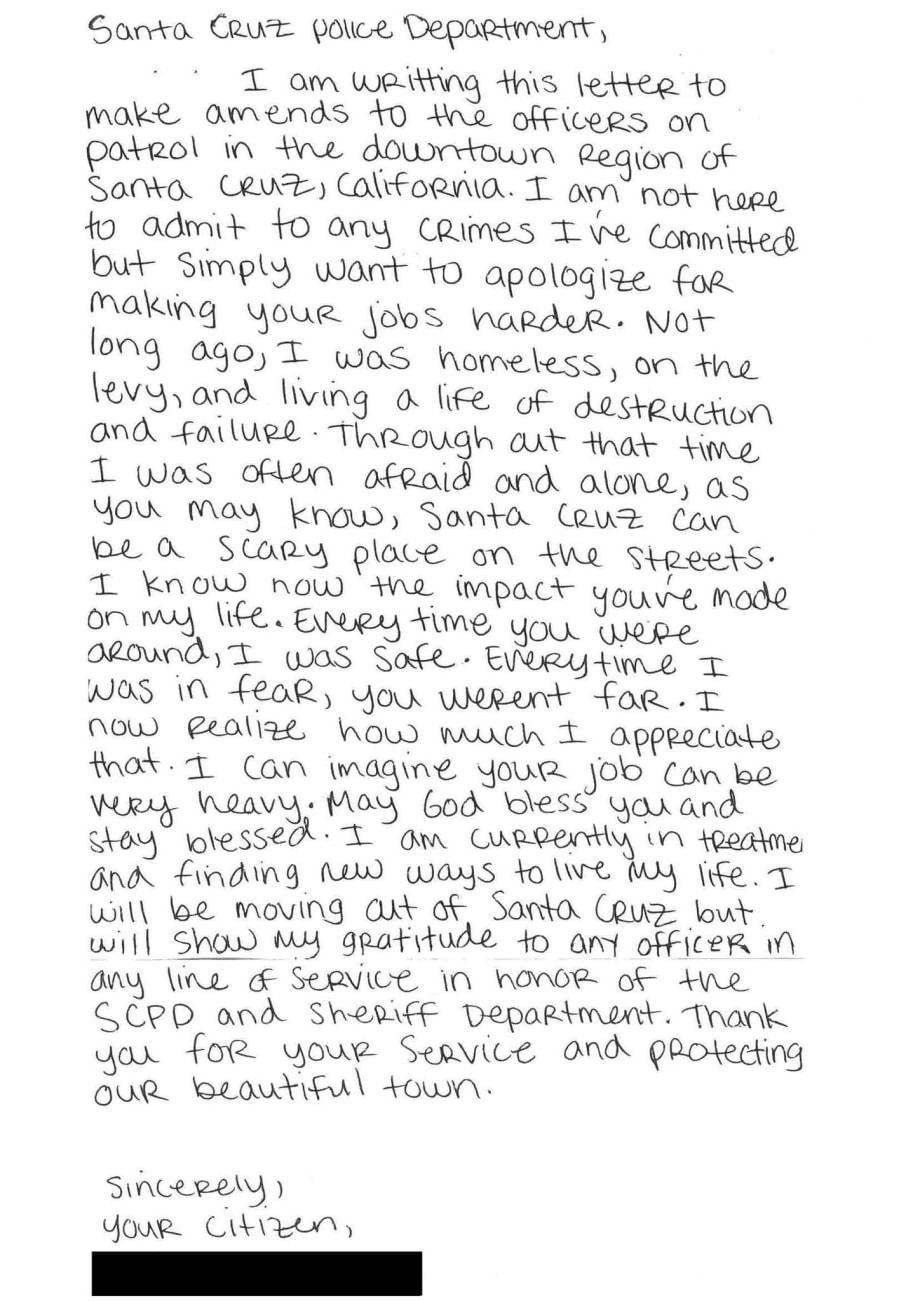 Santa Cruz police Department,
I am writting this letter to
make amends to the officers on
patrol in the downtown Region of
Santa Cruz, California. I am not here
to admit to any crimes I've committed
but simply want to apologize for
making your jobs harder. Not
long ago, I was homeless, on the
levy, and living a life of destruction
and failure. Through out that time
I was often afraid and alone, as
you may know, Santa Cruz can
be a scary place on the streets.
I know now the impact you've made
on my life. Every time you were
around, I was safe. Everytime I
was in fear, you werent far. I
now realize how much I appreciate
that. I can imagine your job can be
very heavy. May God bless you and
stay blessed. I am currently in treatme
and finding new ways to live my life. I
will be moving out of Santa Cruz but
will show my gratitude to any officer in
any line of service in honor of the
SCPD and Sheriff Department. Thank
you for your service and protecting
our beautiful town.
Sincerely,
your citizen,